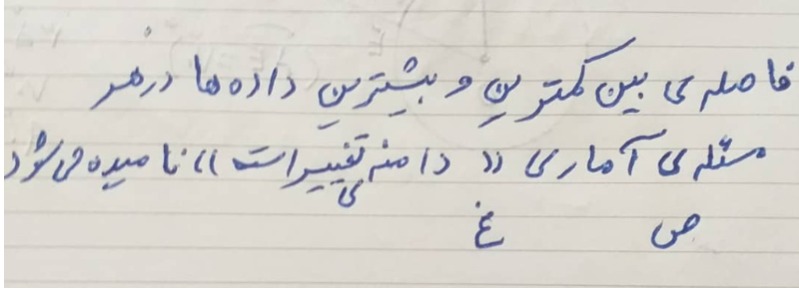 فاصله ی بین کمترین و بیشترین داده ها در هر
مسئله ی آماری « دامنه ی تغییرات » نامیده می شود
ص غ